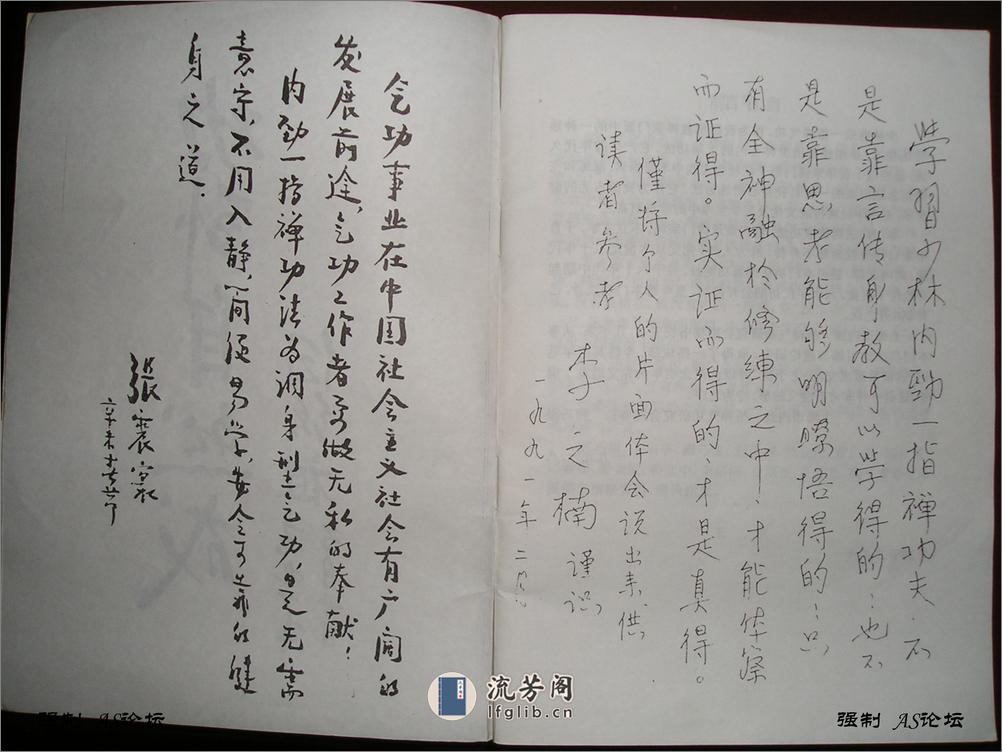 学習少林内勁一指禅功夫．不
是靠言传身教可以学得的；也不
是靠思考能够明瞭悟得的；只
有全神融於修练之中，才能体察
而证得。实证而得的，才是真得。
僅将个人的片面体会说出来供
读者参考
李之楠 谨识
一九九一年二月
气功事业在中国社会主义社会有广阔的
发展前途，气功工作者要做无私的奉献！
内劲一指禅功法为调身型气功，是无需
意守，不用入静，简便易学，安全可靠的健
身之道．
張震寰
辛未
流芳阁
lfglib.cn
强制 AS论坛
强制 AS论坛